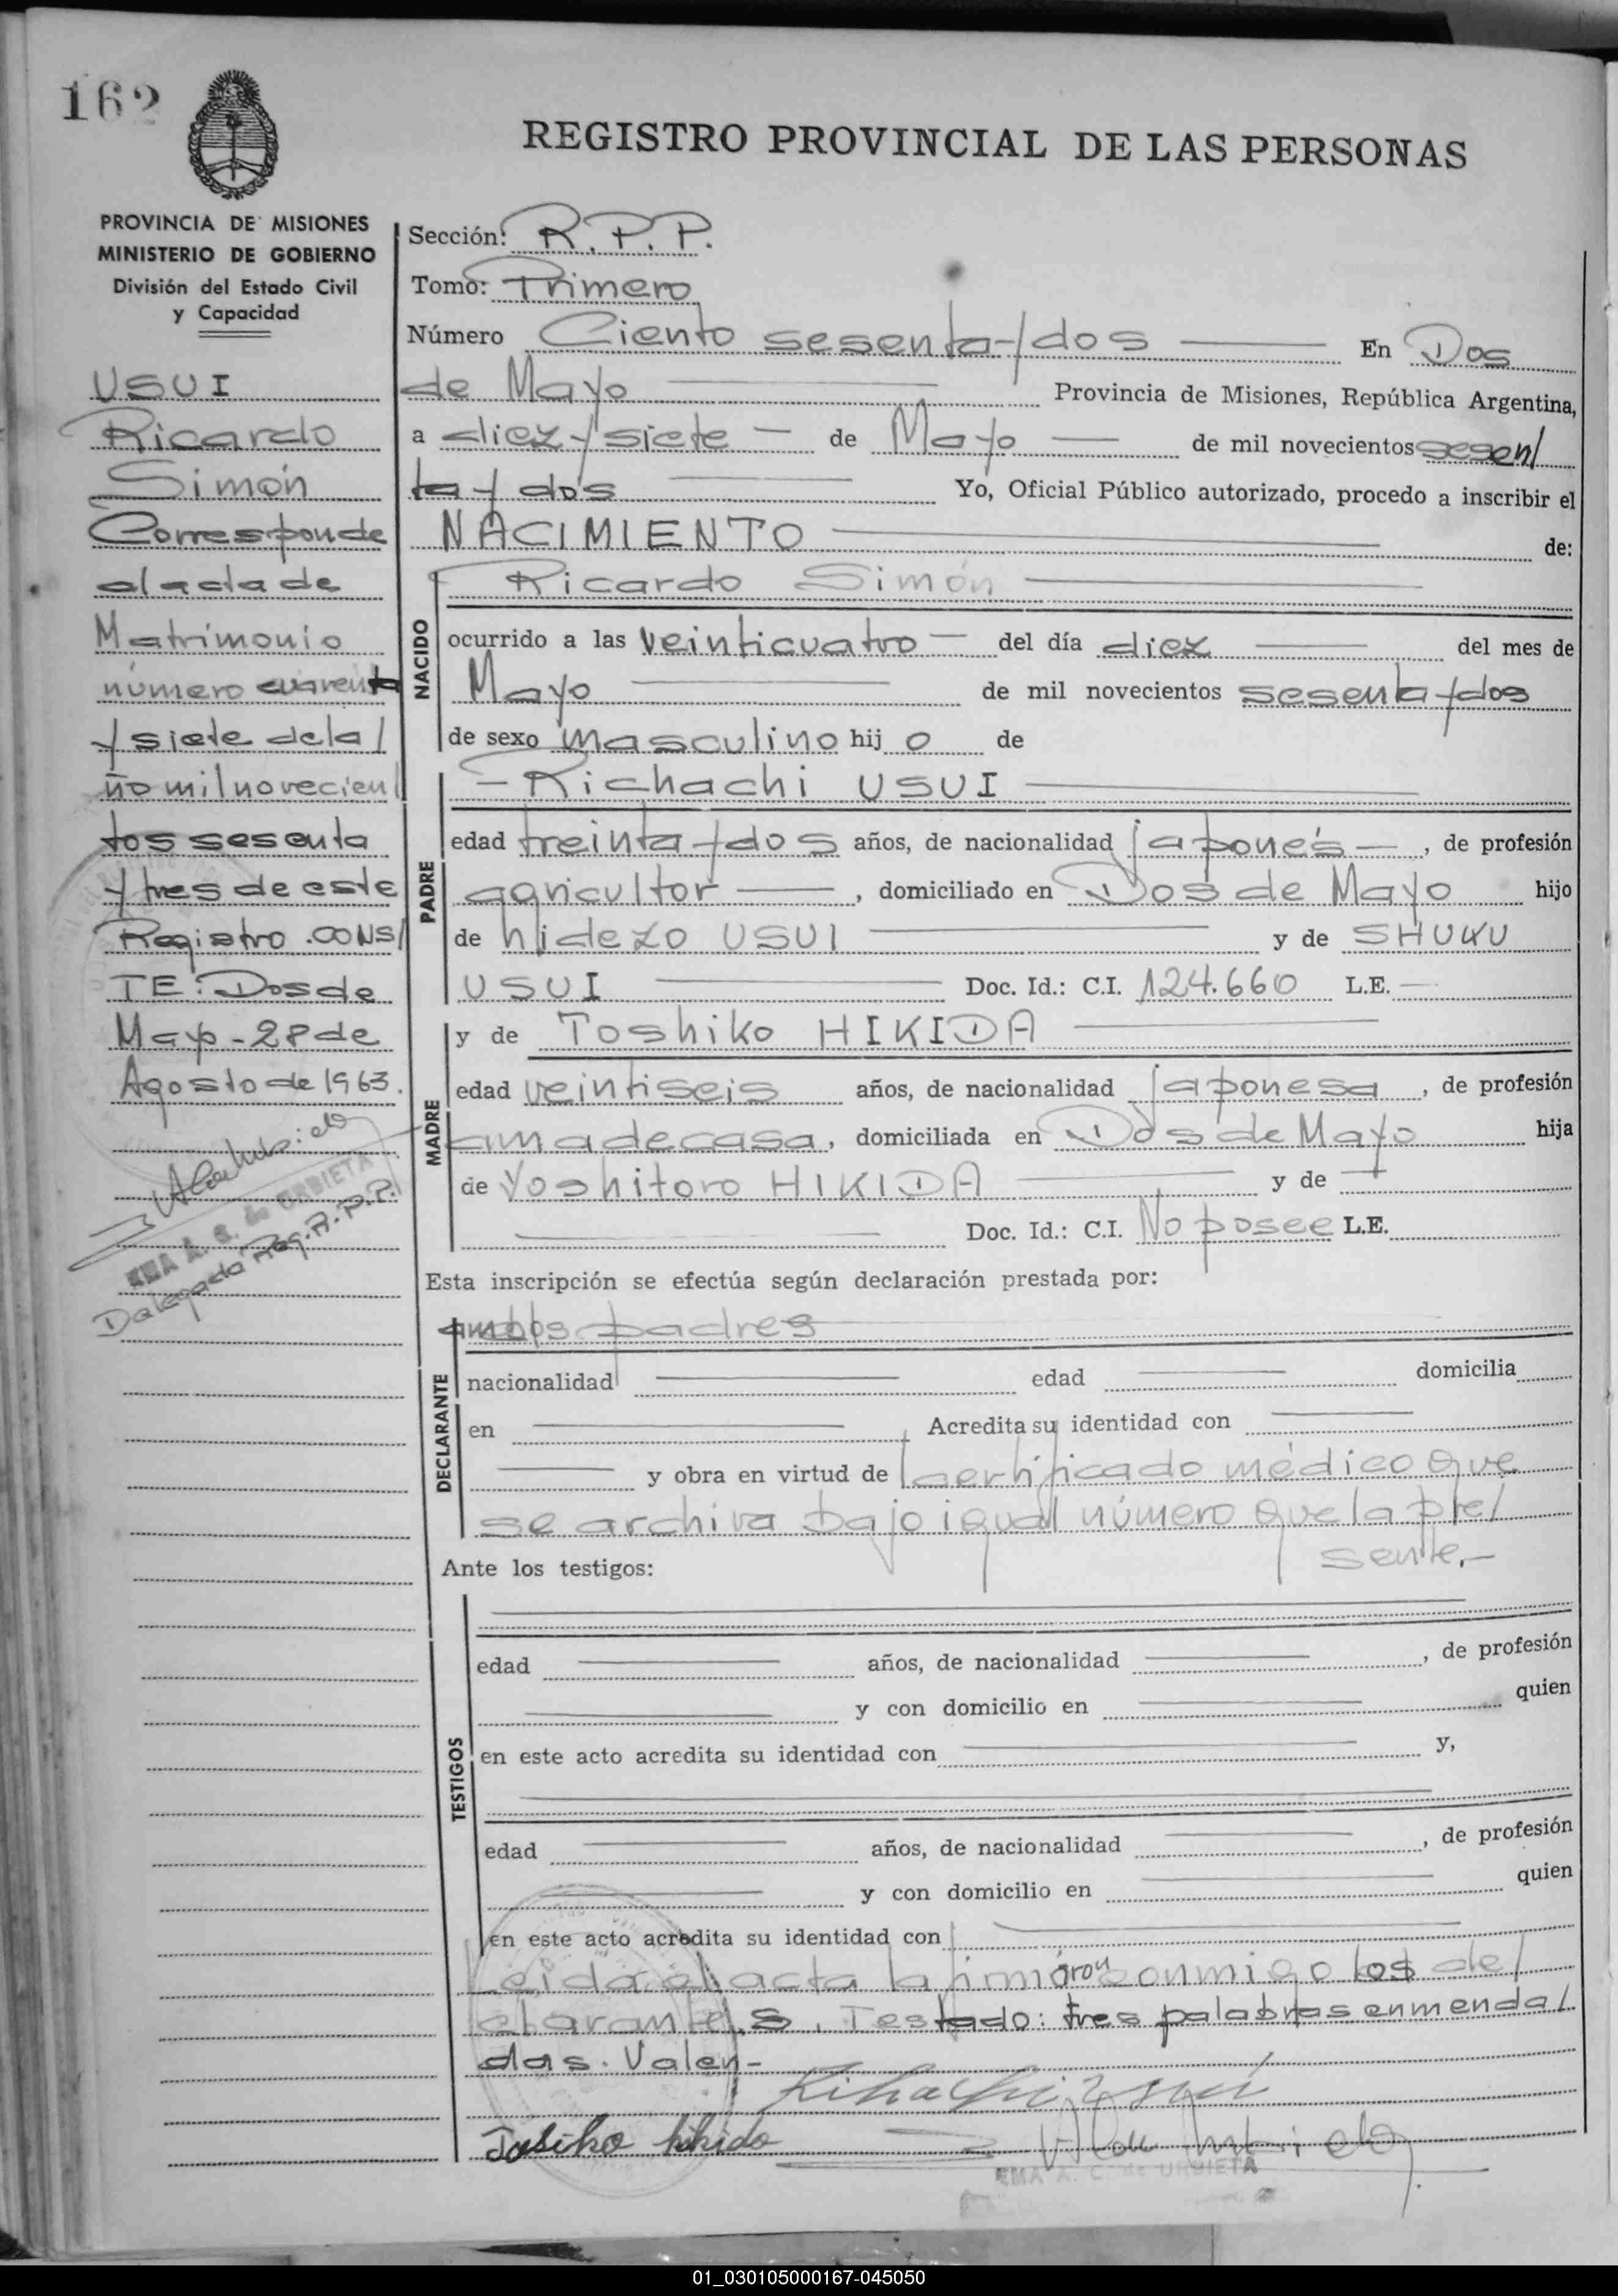 162
REGISTRO PROVINCIAL DE LAS PERSONAS
PROVINCIA DE MISIONES
MINISTERIO DE GOBIERNO
División del Estado Civil
y Capacidad
USUI
Ricardo
Simón
Corresponde
al acta de
Matrimonio
número cuarenta
y siete del a/
ño mil novecien/
tos sesenta
y tres de este
Registro. CONS/
TE: Dos de
Mayo - 28 de
Agosto de 1963.
EMA A. C. de URBIETA
Delegada Reg. R.P.P.
Sección: R.P.P.
Tomo: Primero
Número Ciento sesenta y dos En Dos
de Mayo Provincia de Misiones, República Argentina,
a diez y siete de Mayo de mil novecientos sesen/
ta y dos Yo, Oficial Público autorizado, procedo a inscribir el
NACIMIENTO de:
NACIDO
Ricardo Simón
ocurrido a las veinticuatro del día diez del mes de
Mayo de mil novecientos sesenta y dos
de sexo masculino hij o de
PADRE
Kichachi USUI
edad treinta y dos años, de nacionalidad japonés, de profesión
agricultor, domiciliado en Dos de Mayo hijo
de hidezo USUI y de SHUKU
USUI Doc. Id.: C.I. 124.660 L.E.
MADRE
y de Toshiko HIKIDA
edad veintiseis años, de nacionalidad japonesa, de profesión
ama de casa, domiciliada en Dos de Mayo hija
de Yoshitoro HIKIDA y de
Doc. Id.: C.I. No posee L.E.
Esta inscripción se efectúa según declaración prestada por:
DECLARANTE
ambos padres
nacionalidad edad domicilia
en Acredita su identidad con
y obra en virtud de certificado médico que
se archiva bajo igual número que la pre/
sente.-
Ante los testigos:
TESTIGOS
edad años, de nacionalidad , de profesión
y con domicilio en quien
en este acto acredita su identidad con y,
edad años, de nacionalidad , de profesión
y con domicilio en quien
en este acto acredita su identidad con
Leida el acta la firmaron conmigo los de/
clarantes. Testado: tres palabras enmenda/
das. Valen-
Kihachi Usui
Tosiko hikida
EMA A. C. de URBIETA
01_030105000167-045050